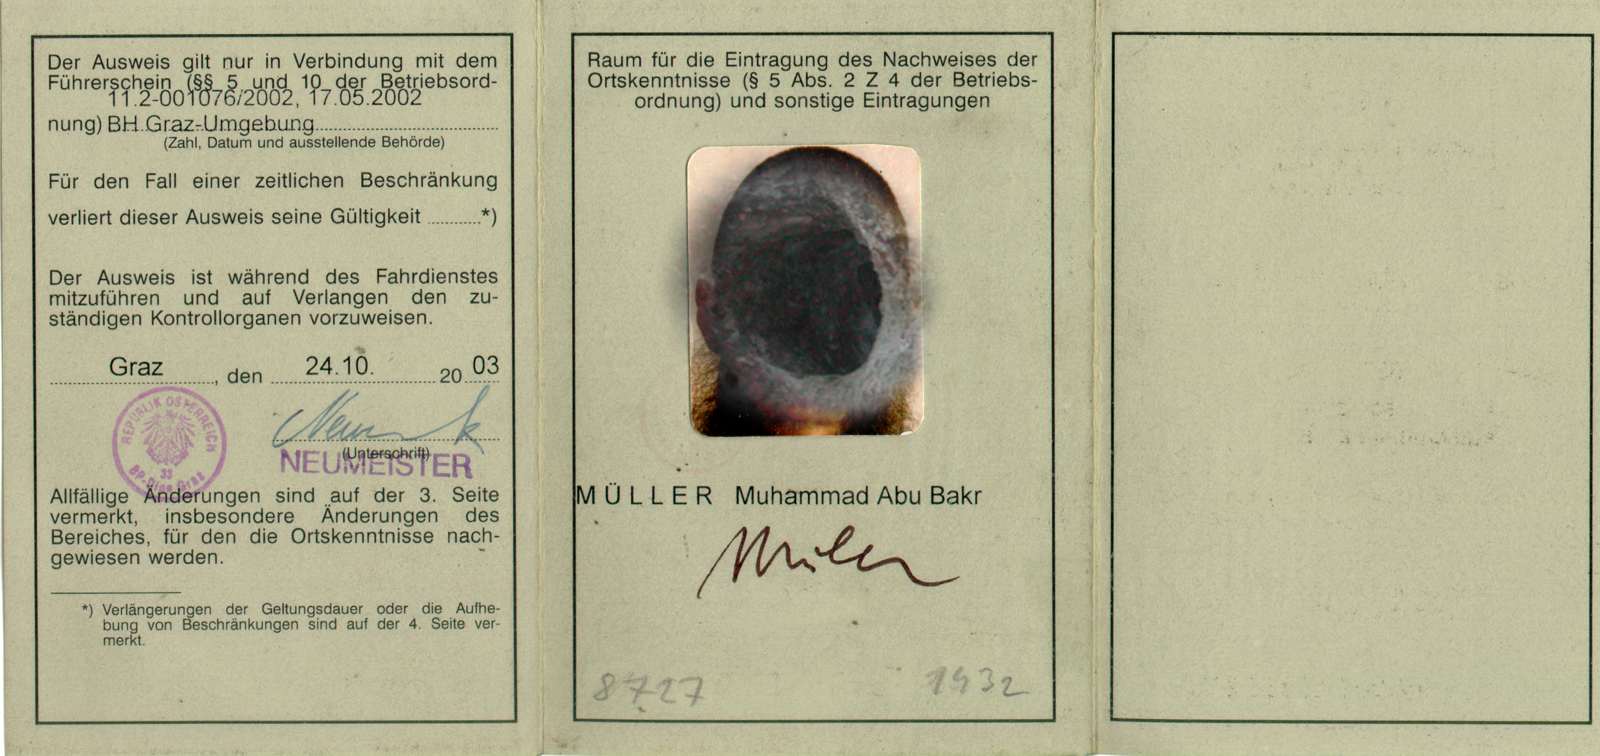 Der Ausweis gilt nur in Verbindung mit dem
Führerschein (§§ 5 und 10 der Betriebsord-
11.2-001076/2002, 17.05.2002
nung) BH Graz-Umgebung
(Zahl, Datum und ausstellende Behörde)
Für den Fall einer zeitlichen Beschränkung
verliert dieser Ausweis seine Gültigkeit ..........*)
Der Ausweis ist während des Fahrdienstes
mitzuführen und auf Verlangen den zu-
ständigen Kontrollorganen vorzuweisen.
Graz, den 24.10. 20 03
REPUBLIK ÖSTERREICH
33
(Unterschrift)
NEUMEISTER
Allfällige Änderungen sind auf der 3. Seite
vermerkt, insbesondere Änderungen des
Bereiches, für den die Ortskenntnisse nach-
gewiesen werden.
*) Verlängerungen der Geltungsdauer oder die Aufhe-
bung von Beschränkungen sind auf der 4. Seite ver-
merkt.
Raum für die Eintragung des Nachweises der
Ortskenntnisse (§ 5 Abs. 2 Z 4 der Betriebs-
ordnung) und sonstige Eintragungen
MÜLLER Muhammad Abu Bakr
8727 1932